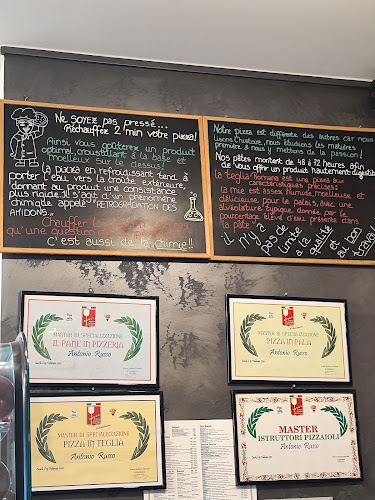 Ne soyez pas pressé...
Réchauffez 2 min votre pizza!
Ainsi vous goûterez un produit
optimal croustillant à la base et
moelleux sur le dessus!
La pizza en refroidissant tend à
porter l'eau vers la croûte extérieure,
donnant au produit une consistance
plus rigide. Il s'agit d'un phénomène
chimique appelé "RETROGRADATION DES
AMIDONS."
Chauffer
qu'une question
c'est aussi de la chimie!!
Notre pizza est différente des autres car nous
lisons l'histoire, nous étudions les matières
première & nous y mettons de la passion!
Nos pâtes montent de 48 à 72 heures afin de
vous offrir un produit hautement digestible
La teglia Romana est une pizza aux
caractéristiques précises:
la mie est assez humide, moelleuse et
délicieuse, pour le palais, avec une
alvéolature typique donnée par le
pourcentage élevé d'eau présente dans
la pâte.
il n'y a pas de limite à la qualité et au bon travail
MASTER DI SPECIALIZZAZIONE
IL PANE IN PIZZERIA
Antonio Russo
MASTER DI SPECIALIZZAZIONE
PIZZA IN PALA
Antonio Russo
MASTER DI SPECIALIZZAZIONE
PIZZA IN TEGLIA
Antonio Russo
MASTER
ISTRUTTORI PIZZAIOLI
Antonio Russo